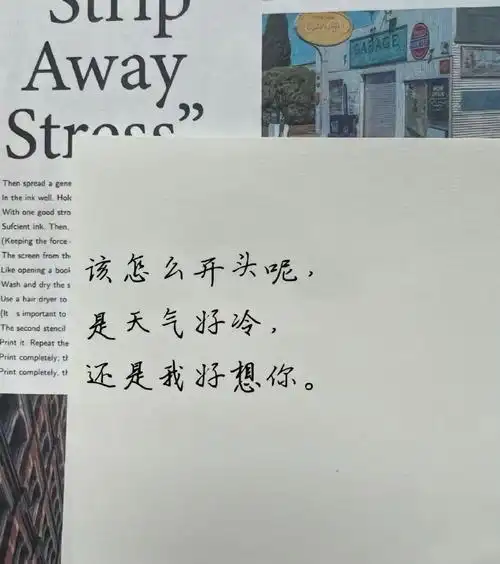 Strip
Away
Stress”
GARAGE
Then spread a gene
In the ink well. Hold
With one good stro
Sufcient ink. Then,
(Keeping the force
The screen from the
Like opening a book
Wash and dry the s
Use a hair dryer to
(It s important to
The second stencil
Print it. Repeat the
Print completely; th
Print completely, th
该怎么开头呢，
是天气好冷，
还是我好想你。